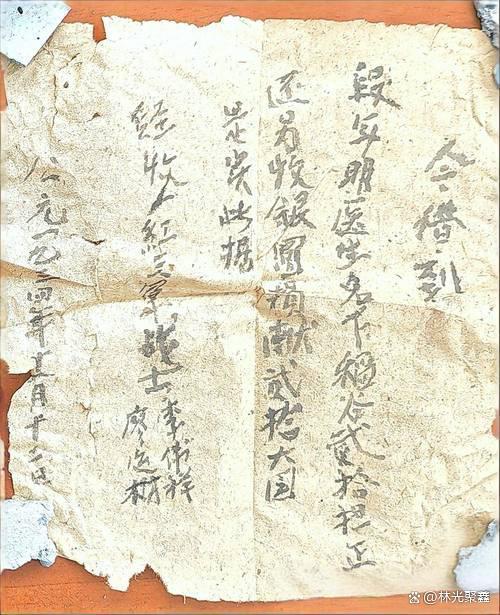 今借到
段年明医生名下稻谷贰拾担正
还另收银圆捐献贰拾大圆
是实此据
经收人红三军战士李伟祥
廖运材
公元一九三四年十一月十二日
@林光聚鑫